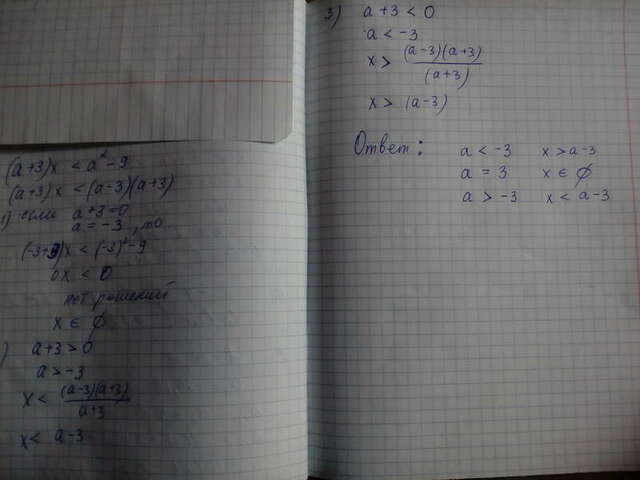 (a+3)x < a² - 9
(a+3)x < (a-3)(a+3)
1) если a+3=0
a = -3, то
(-3+3)x < (-3)² - 9
0x < 0
нет решений
x ∈ ∅
) a+3 > 0
a > -3
x < (a-3)(a+3)
a+3
x < a-3
3) a+3 < 0
a < -3
x > (a-3)(a+3)
(a+3)
x > (a-3)
Ответ: a < -3 x > a-3
a = 3 x ∈ ∅
a > -3 x < a-3